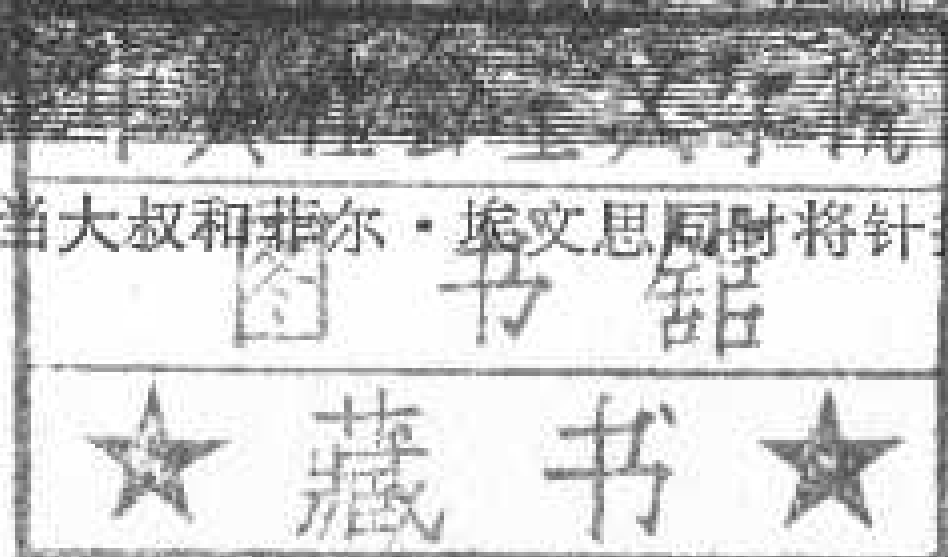 当大叔和菲尔·埃文思同时将针
图书馆
★藏书★